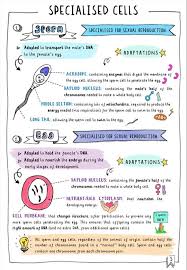 SPECIALISED CELLS
① SPERM
SPECIALISED FOR SEXUAL REPRODUCTION
• Adapted to transport the male's DNA
to the female's egg.
ADAPTATIONS
ACROSOME, containing enzymes that digest the membrane of
the egg cell, allowing the sperm cell to penetrate it.
HAPLOID NUCLEUS, containing the male's half of the
chromosomes needed to make a whole body cell.
MIDDLE SECTION, containing lots of mitochondria, required to provide the
energy needed from respiration for the sperm to swim to the egg.
LONG TAIL, allowing sperm to swim to the egg.
② EGG
SPECIALISED FOR SEXUAL REPRODUCTION
• Adapted to hold the female's DNA.
• Adapted to nourish the embryo during the
early stages of development.
ADAPTATIONS
HAPLOID NUCLEUS, containing the female's half of the
chromosomes needed to make a whole body cell.
NUTRIENT-RICH CYTOPLASM, that nourishes the
developing embryo.
CELL MEMBRANE, that changes structure after fertilisation to prevent any
more sperm cells penetrating the egg. This ensures that offspring contain the
right amount of DNA
All sperm and egg cells, regardless of the animal of origin, contain half the
number of chromosomes found in a "normal" body cell. Sperm and egg cells
contain one chromosome from each pair.